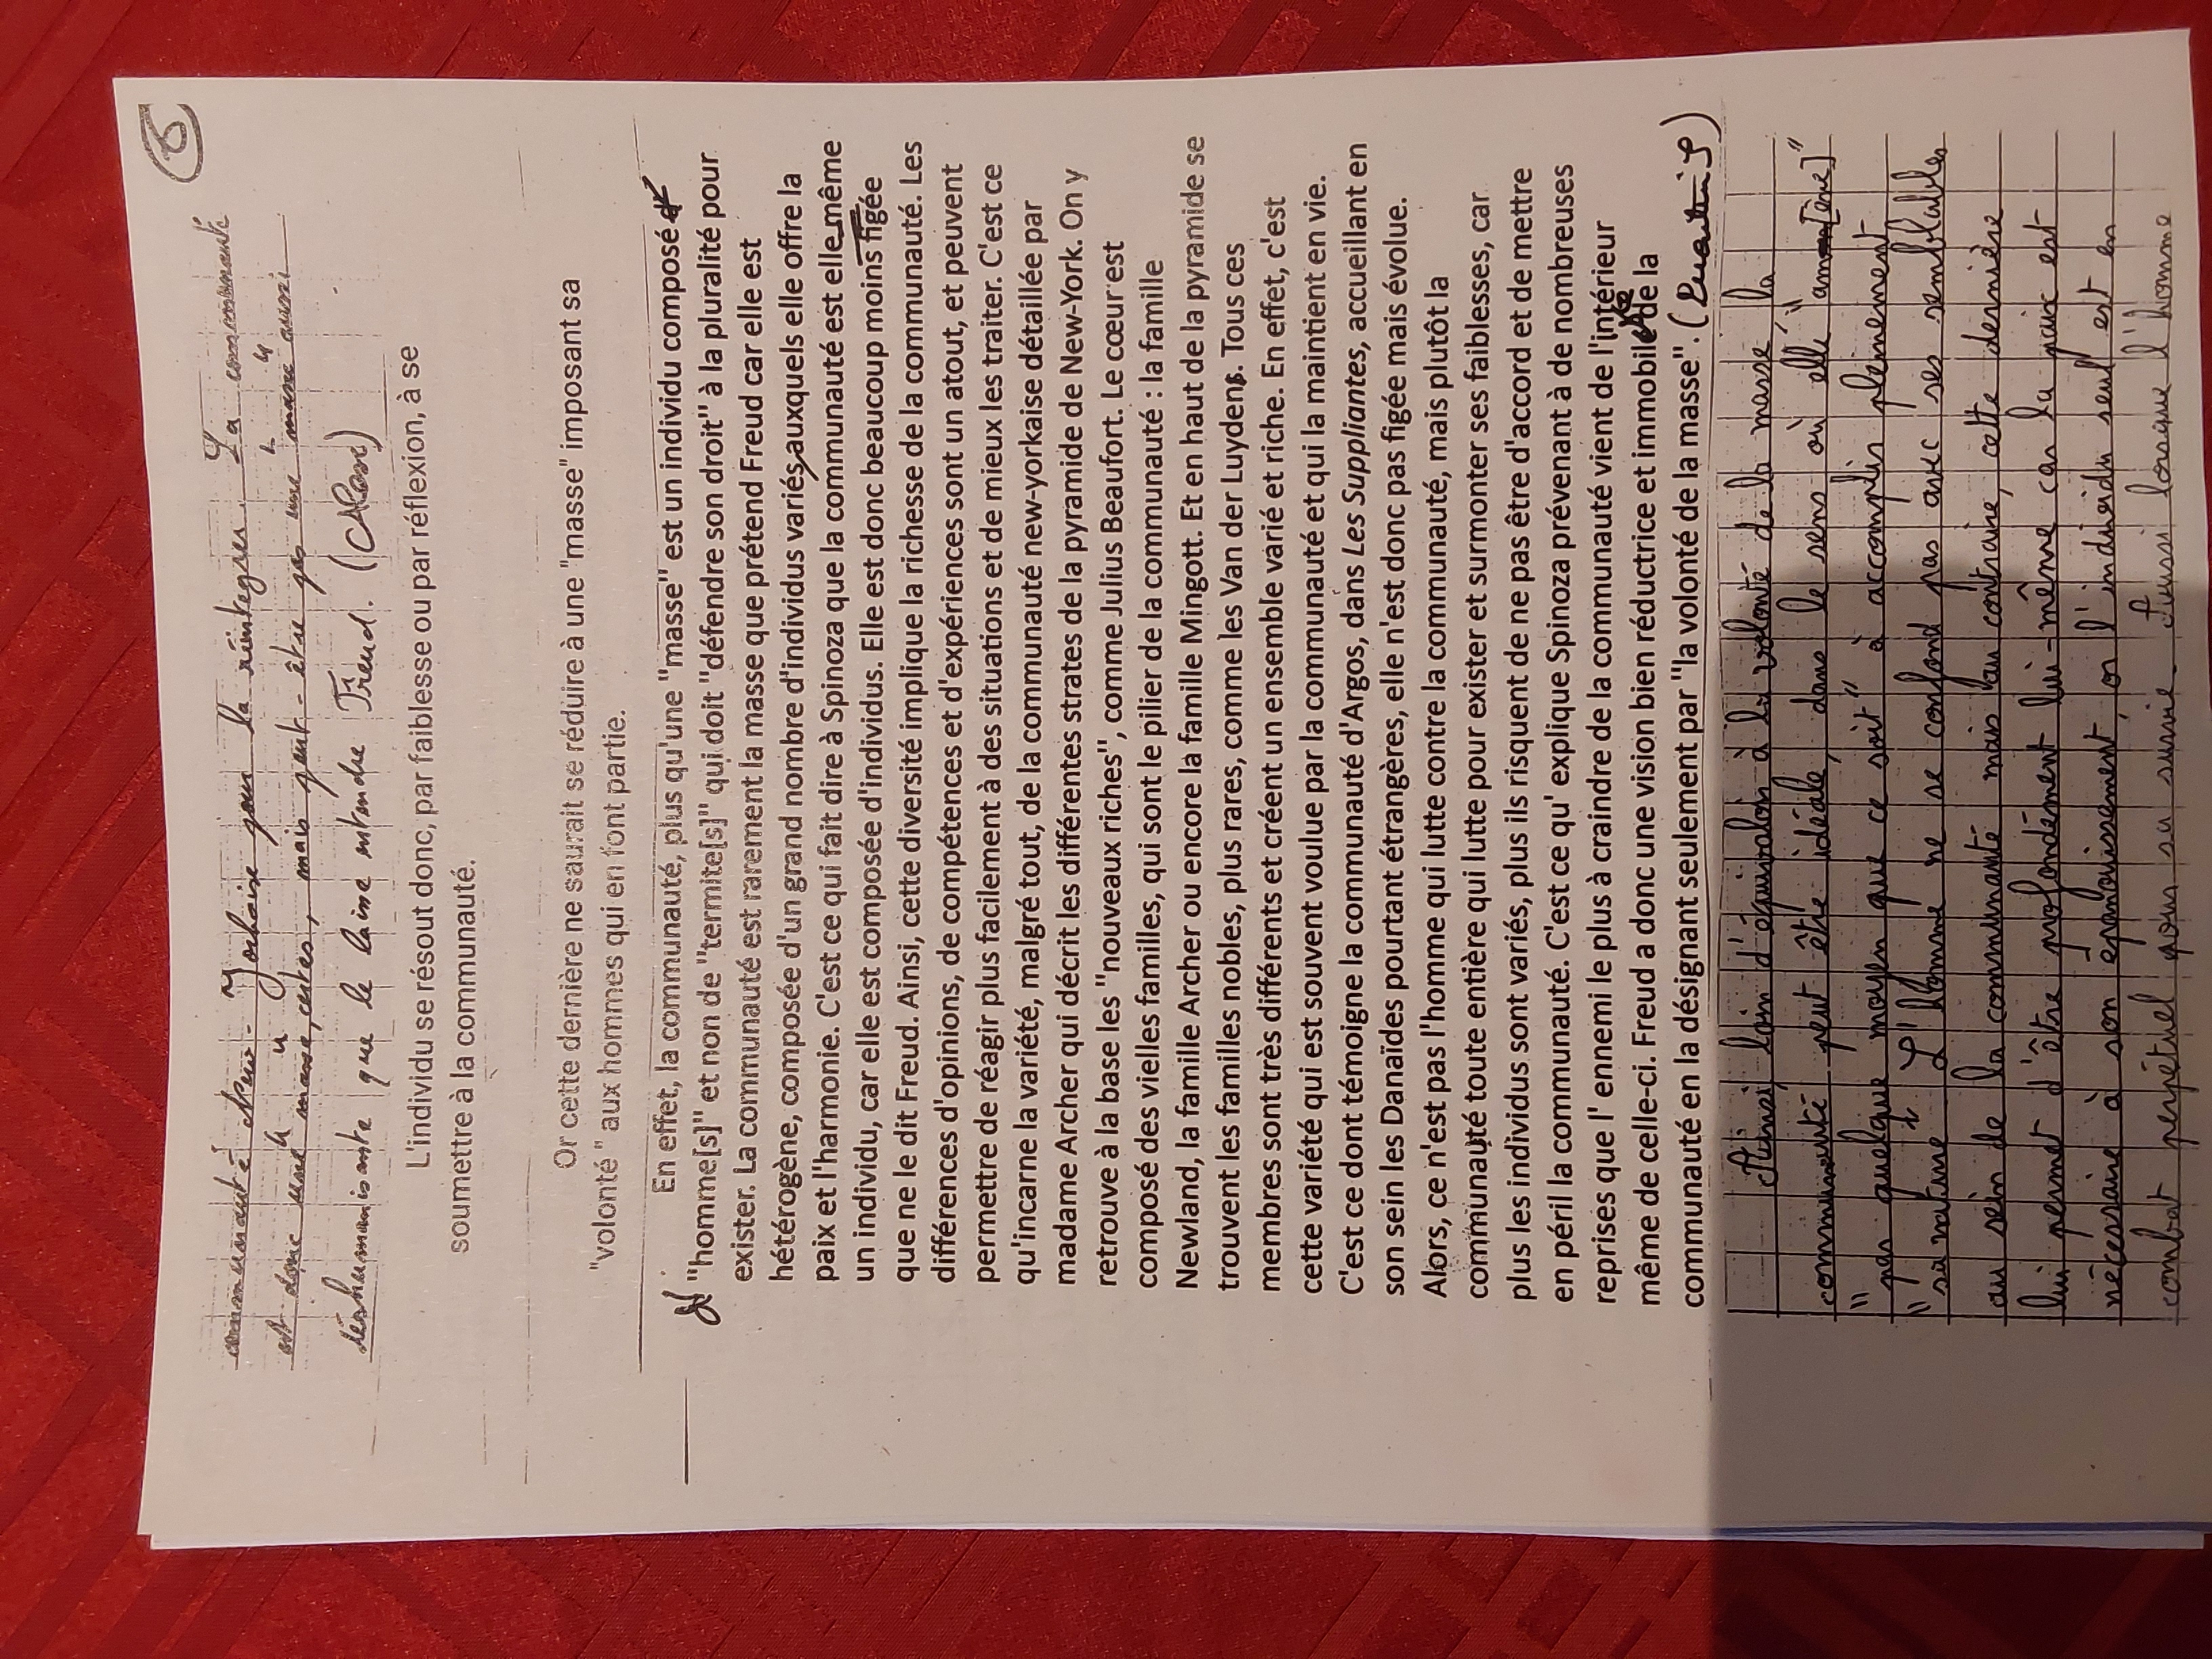 ⑧
communauté New-Yorkaise pour la réintégrer. La communauté
est donc une "masse", certes, mais peut-être pas une "masse" aussi
déshumanisante que le laisse entendre Freud. (
L'individu se résout donc, par faiblesse ou par réflexion, à se
soumettre à la communauté.
Or cette dernière ne saurait se réduire à une "masse" imposant sa
"volonté" aux hommes qui en font partie.
En effet, la communauté, plus qu'une "masse" est un individu composé
d' "homme[s]" et non de "termite[s]" qui doit "défendre son droit" à la pluralité pour
exister. La communauté est rarement la masse que prétend Freud car elle est
hétérogène, composée d'un grand nombre d'individus variés auxquels elle offre la
paix et l'harmonie. C'est ce qui fait dire à Spinoza que la communauté est elle même
un individu, car elle est composée d'individus. Elle est donc beaucoup moins figée
que ne le dit Freud. Ainsi, cette diversité implique la richesse de la communauté. Les
différences d'opinions, de compétences et d'expériences sont un atout, et peuvent
permettre de réagir plus facilement à des situations et de mieux les traiter. C'est ce
qu'incarne la variété, malgré tout, de la communauté new-yorkaise détaillée par
madame Archer qui décrit les différentes strates de la pyramide de New-York. On y
retrouve à la base les "nouveaux riches", comme Julius Beaufort. Le cœur est
composé des vielles familles, qui sont le pilier de la communauté : la famille
Newland, la famille Archer ou encore la famille Mingott. Et en haut de la pyramide se
trouvent les familles nobles, plus rares, comme les Van der Luyden. Tous ces
membres sont très différents et créent un ensemble varié et riche. En effet, c'est
cette variété qui est souvent voulue par la communauté et qui la maintient en vie.
C'est ce dont témoigne la communauté d'Argos, dans Les Suppliantes, accueillant en
son sein les Danaïdes pourtant étrangères, elle n'est donc pas figée mais évolue.
Alors, ce n'est pas l'homme qui lutte contre la communauté, mais plutôt la
communauté toute entière qui lutte pour exister et surmonter ses faiblesses, car
plus les individus sont variés, plus ils risquent de ne pas être d'accord et de mettre
en péril la communauté. C'est ce qu' explique Spinoza prévenant à de nombreuses
reprises que l' ennemi le plus à craindre de la communauté vient de l'intérieur
même de celle-ci. Freud a donc une vision bien réductrice et immobile de la
communauté en la désignant seulement par "la volonté de la masse". (
Ainsi, loin d'équivaloir à la volonté de la masse la
communauté peut être idéale, dans le sens où elle "am[ène]"
"par quelque moyen que ce soit" à accomplir pleinement
"sa nature". L'homme ne se confond pas avec ses semblables
au sein de la communauté mais au contraire, cette dernière
lui permet d'être profondément lui-même car la paix est
nécessaire à son épanouissement, or l'individu seul est en
combat perpétuel pour sa survie. Aussi lorsque l'homme